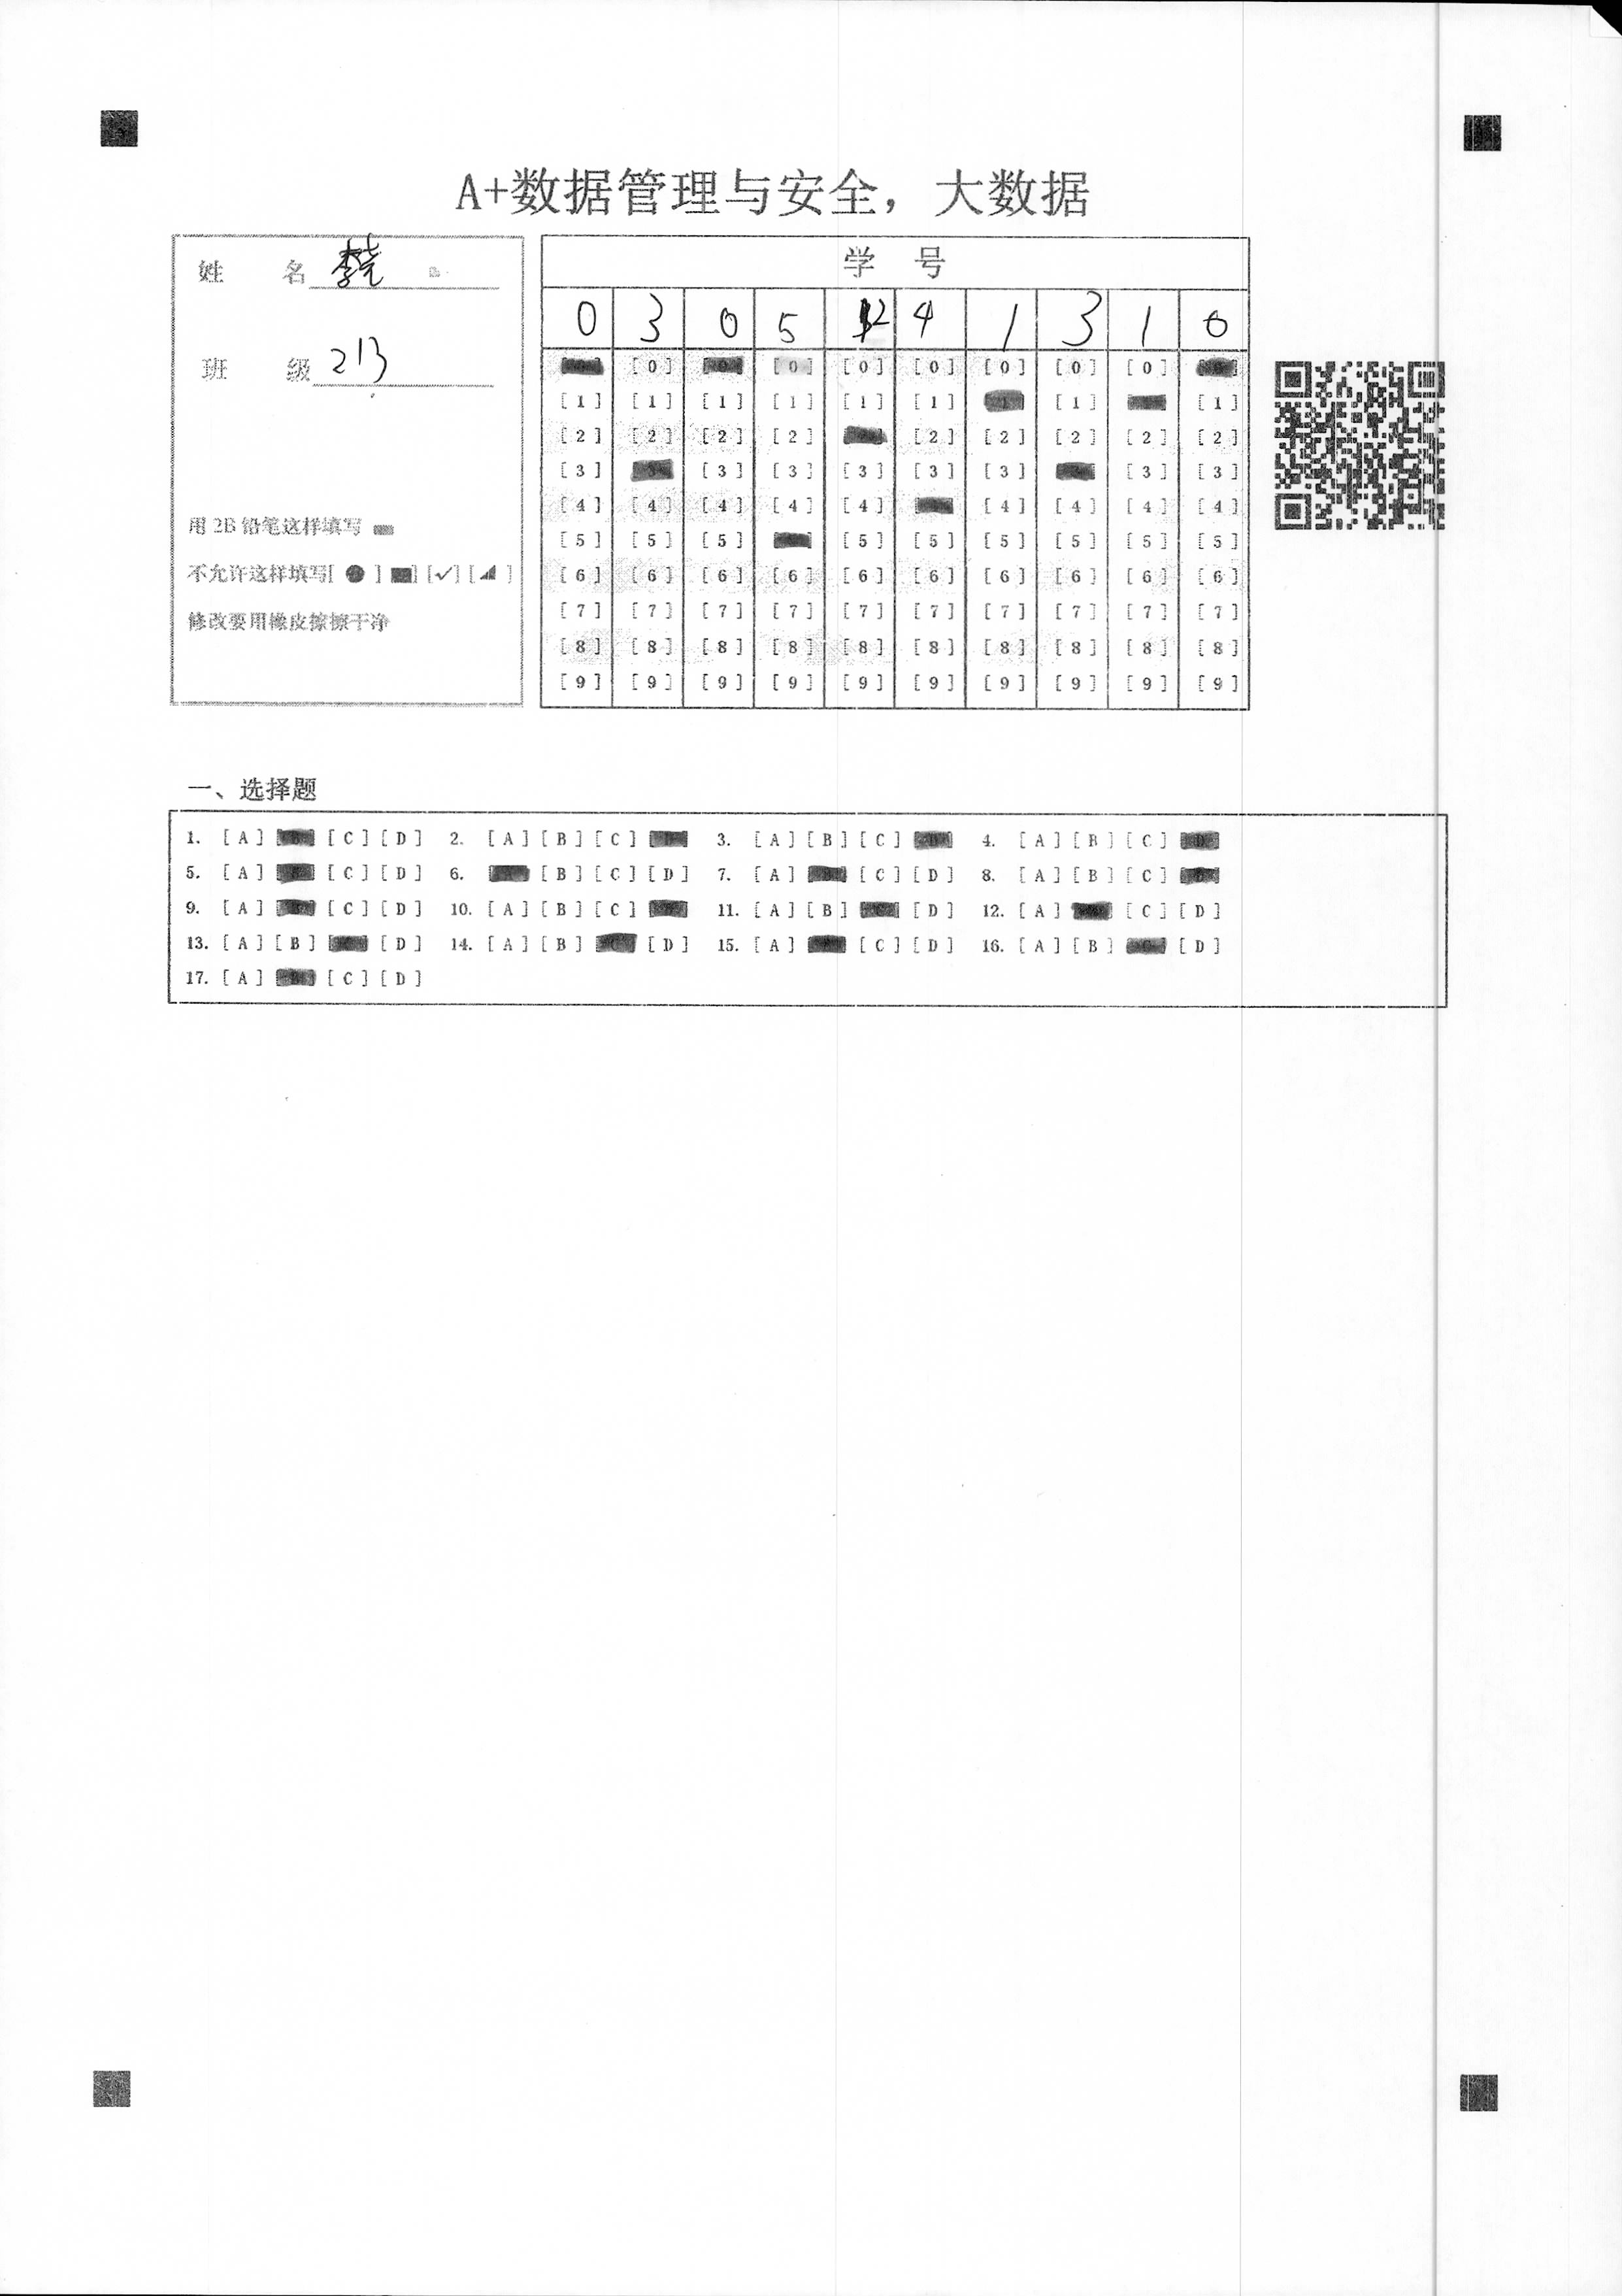 A+数据管理与安全，大数据
姓 名 李尧
班 级 213
用 2B 铅笔这样填写
不允许这样填写[ ● ] [✓] [ ]
修改要用橡皮擦擦干净
学 号
0 3 0 5 2 4 1 3 1 0
[0] [0] [0] [0] [0] [0] [0]
[1] [1] [1] [1] [1] [1] [1] [1]
[2] [2] [2] [2] [2] [2] [2] [2] [2]
[3] [3] [3] [3] [3] [3] [3] [3]
[4] [4] [4] [4] [4] [4] [4] [4] [4]
[5] [5] [5] [5] [5] [5] [5] [5] [5]
[6] [6] [6] [6] [6] [6] [6] [6] [6] [6]
[7] [7] [7] [7] [7] [7] [7] [7] [7] [7]
[8] [8] [8] [8] [8] [8] [8] [8] [8] [8]
[9] [9] [9] [9] [9] [9] [9] [9] [9] [9]
一、选择题
1. [A] [C] [D] 2. [A] [B] [C] 3. [A] [B] [C] 4. [A] [B] [C]
5. [A] [C] [D] 6. [B] [C] [D] 7. [A] [C] [D] 8. [A] [B] [C]
9. [A] [C] [D] 10. [A] [B] [C] 11. [A] [B] [D] 12. [A] [C] [D]
13. [A] [B] [D] 14. [A] [B] [D] 15. [A] [C] [D] 16. [A] [B] [D]
17. [A] [C] [D]